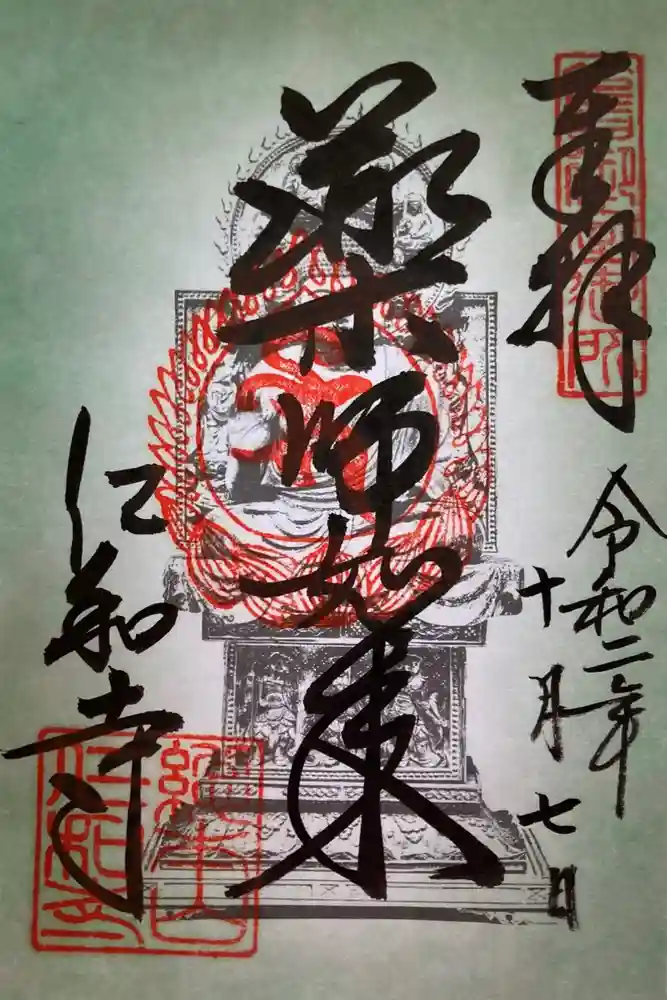 奉拝
令和二年
十月七日
薬師如来
仁和寺